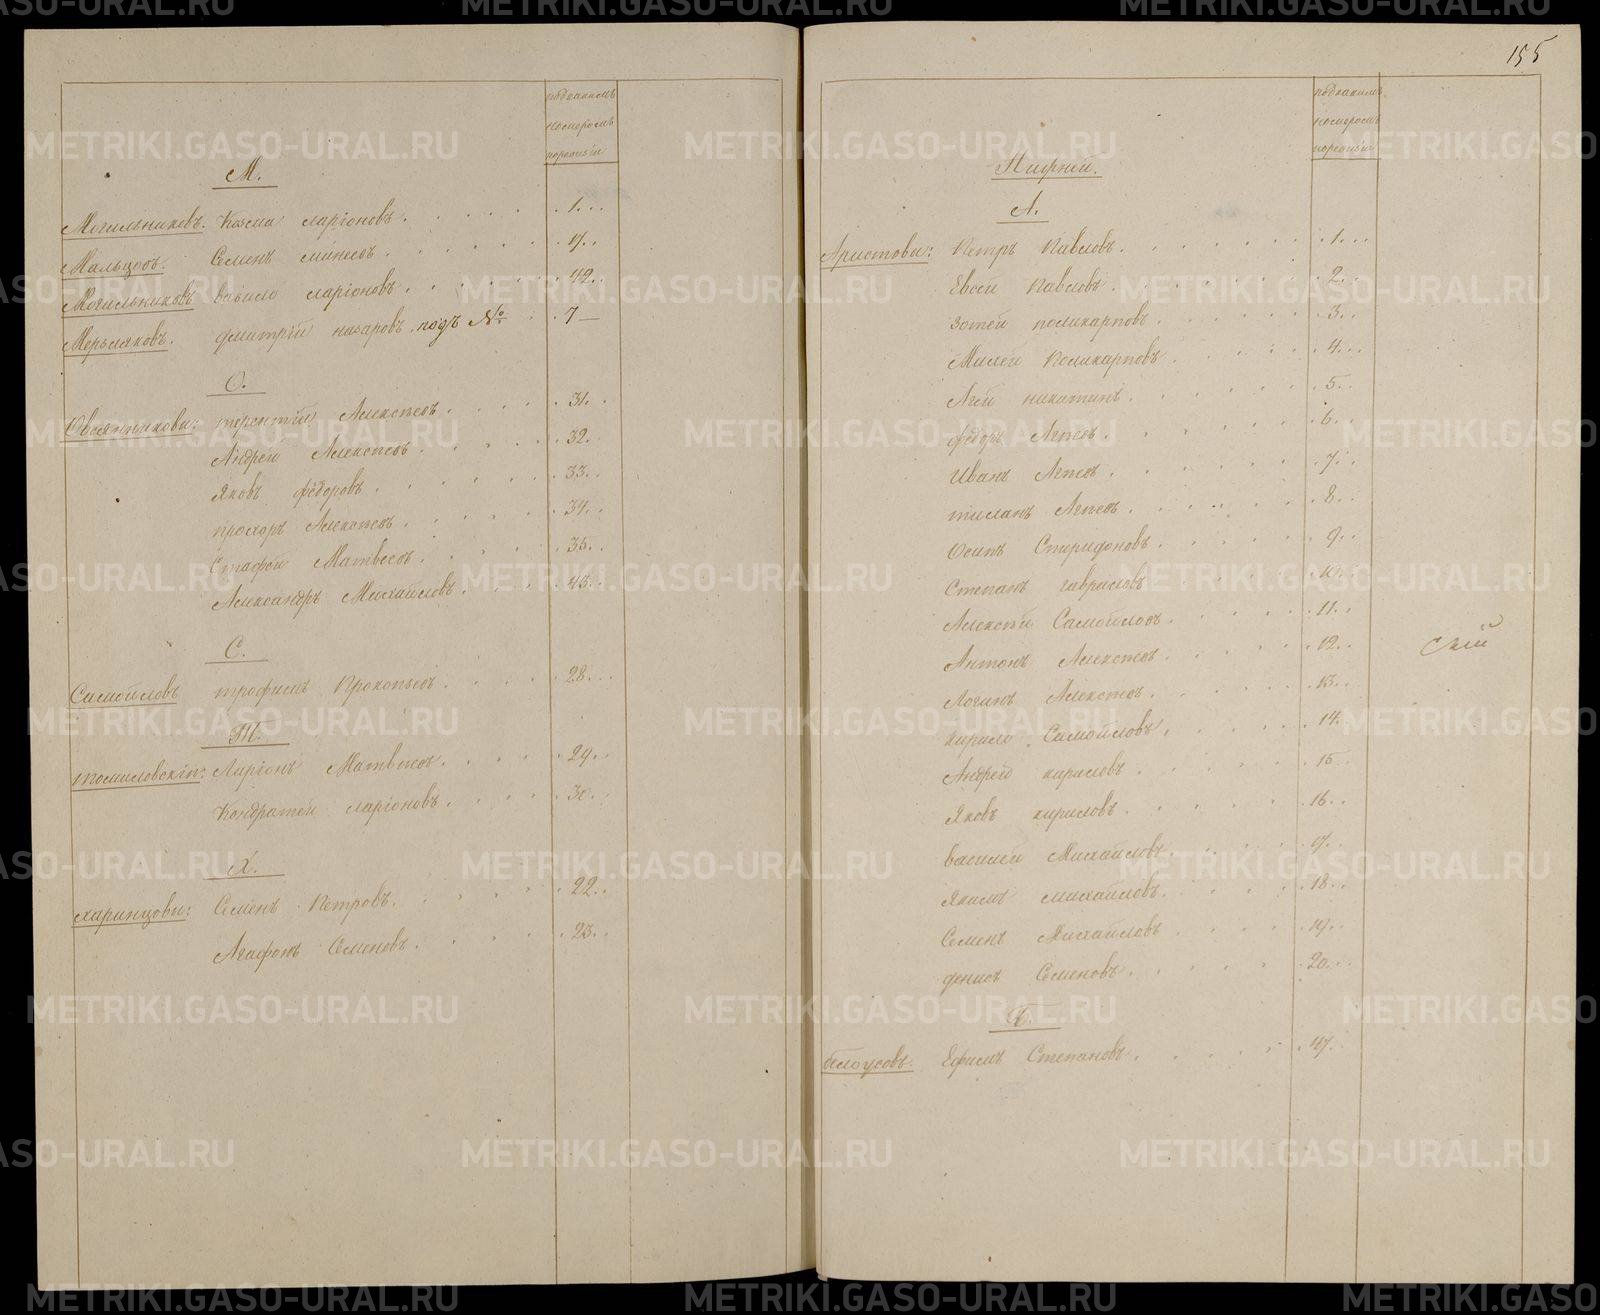 подъкакимъ
номеромъ
поревизіи
М.
Могильниковъ. Козма ларіоновъ. 1.
Мальцовъ. Семенъ минеевъ. 17.
Могильниковъ василе ларіоновъ. 42.
Мерзляковъ. дмитрій назаровъ. подъ № 7
О.
Овсянниковы: терентій Алексѣевъ. 31.
Андрей Алексѣевъ. 32.
Яковъ федоровъ. 33.
прохоръ Алексѣевъ. 34.
Матвеевъ. 35.
Александръ Михайловъ. 43.
С.
Самойловъ трофимъ Прокопьевъ. 28.
Т.
томиловскіи: Ларіонъ Матвѣевъ. 29.
Кондратей ларіоновъ. 30.
Х.
харинцовы: Семенъ Петровъ. 22.
Агафонъ Семеновъ. 23.
155
подъкакимъ
номеромъ
поревизіи
А.
Аристовы: Петръ Павловъ. 1.
Евсей Павловъ. 2.
Зотей поликарповъ 3.
Милей Поликарповъ 4.
Агей никитинъ. 5.
федоръ Агѣевъ. 6.
Иванъ Агѣевъ. 7.
Агѣевъ. 8.
Осипъ Спиридоновъ. 9.
Степанъ гавриловъ 10.
Алексѣй Самойловъ. 11.
Антонъ Алексѣевъ. 12.
Логинъ Алексѣевъ. 13.
кирило Самойловъ. 14.
Андрей кириловъ. 15.
Яковъ кириловъ. 16.
василей Михайловъ. 17.
Якимъ михайловъ. 18.
Семенъ Михайловъ 19.
денисъ Семеновъ. 20.
Б.
белоусовъ. Ефимъ Степановъ. 47.
METRIKI.GASO-URAL.RU